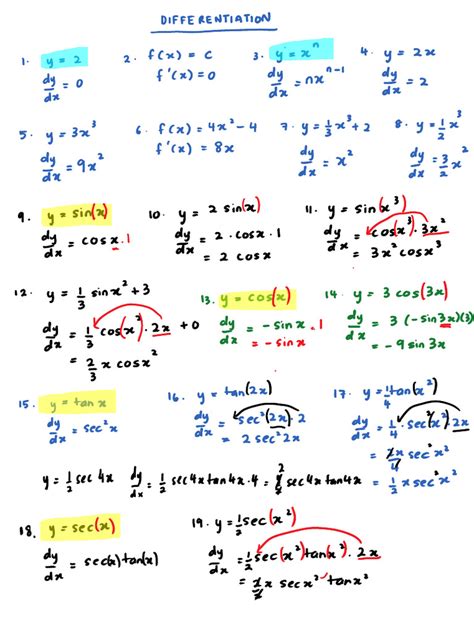 DIFFERENTIATION
1. y = 2
dy/dx = 0
2. f(x) = c
f'(x) = 0
3. y = xⁿ
dy/dx = nxⁿ⁻¹
4. y = 2x
dy/dx = 2
5. y = 3x³
dy/dx = 9x²
6. f(x) = 4x² - 4
f'(x) = 8x
7. y = 1/3 x³ + 2
dy/dx = x²
8. y = 1/2 x³
dy/dx = 3/2 x²
9. y = sin(x)
dy/dx = cos x . 1
10. y = 2 sin(x)
dy/dx = 2 . cos x . 1
= 2 cos x
11. y = sin(x³)
dy/dx = cos(x)³ . 3x²
= 3x² cos x³
12. y = 1/3 sin x² + 3
dy/dx = 1/3 cos(x²) . 2x + 0
= 2/3 x cos x²
13. y = cos(x)
dy/dx = -sin x . 1
= -sin x
14. y = 3 cos(3x)
dy/dx = 3 (-sin 3x)(3)
= -9 sin 3x
15. y = tan x
dy/dx = sec² x
16. y = tan(2x)
dy/dx = sec²(2x) . 2
= 2 sec² 2x
17. y = 1/4 tan(x²)
dy/dx = 1/4 . sec²(x²) . 2x
= 2x/4 sec² x²
= 1/2 x sec² x²
y = 1/2 sec 4x
dy/dx = 1/2 sec 4x tan 4x . 4 = 4/2 sec 4x tan 4x
18. y = sec(x)
dy/dx = sec(x) tan(x)
19. y = 1/2 sec(x²)
dy/dx = 1/2 sec(x²) tan(x²) . 2x
= 2/2 x sec x² tan x²